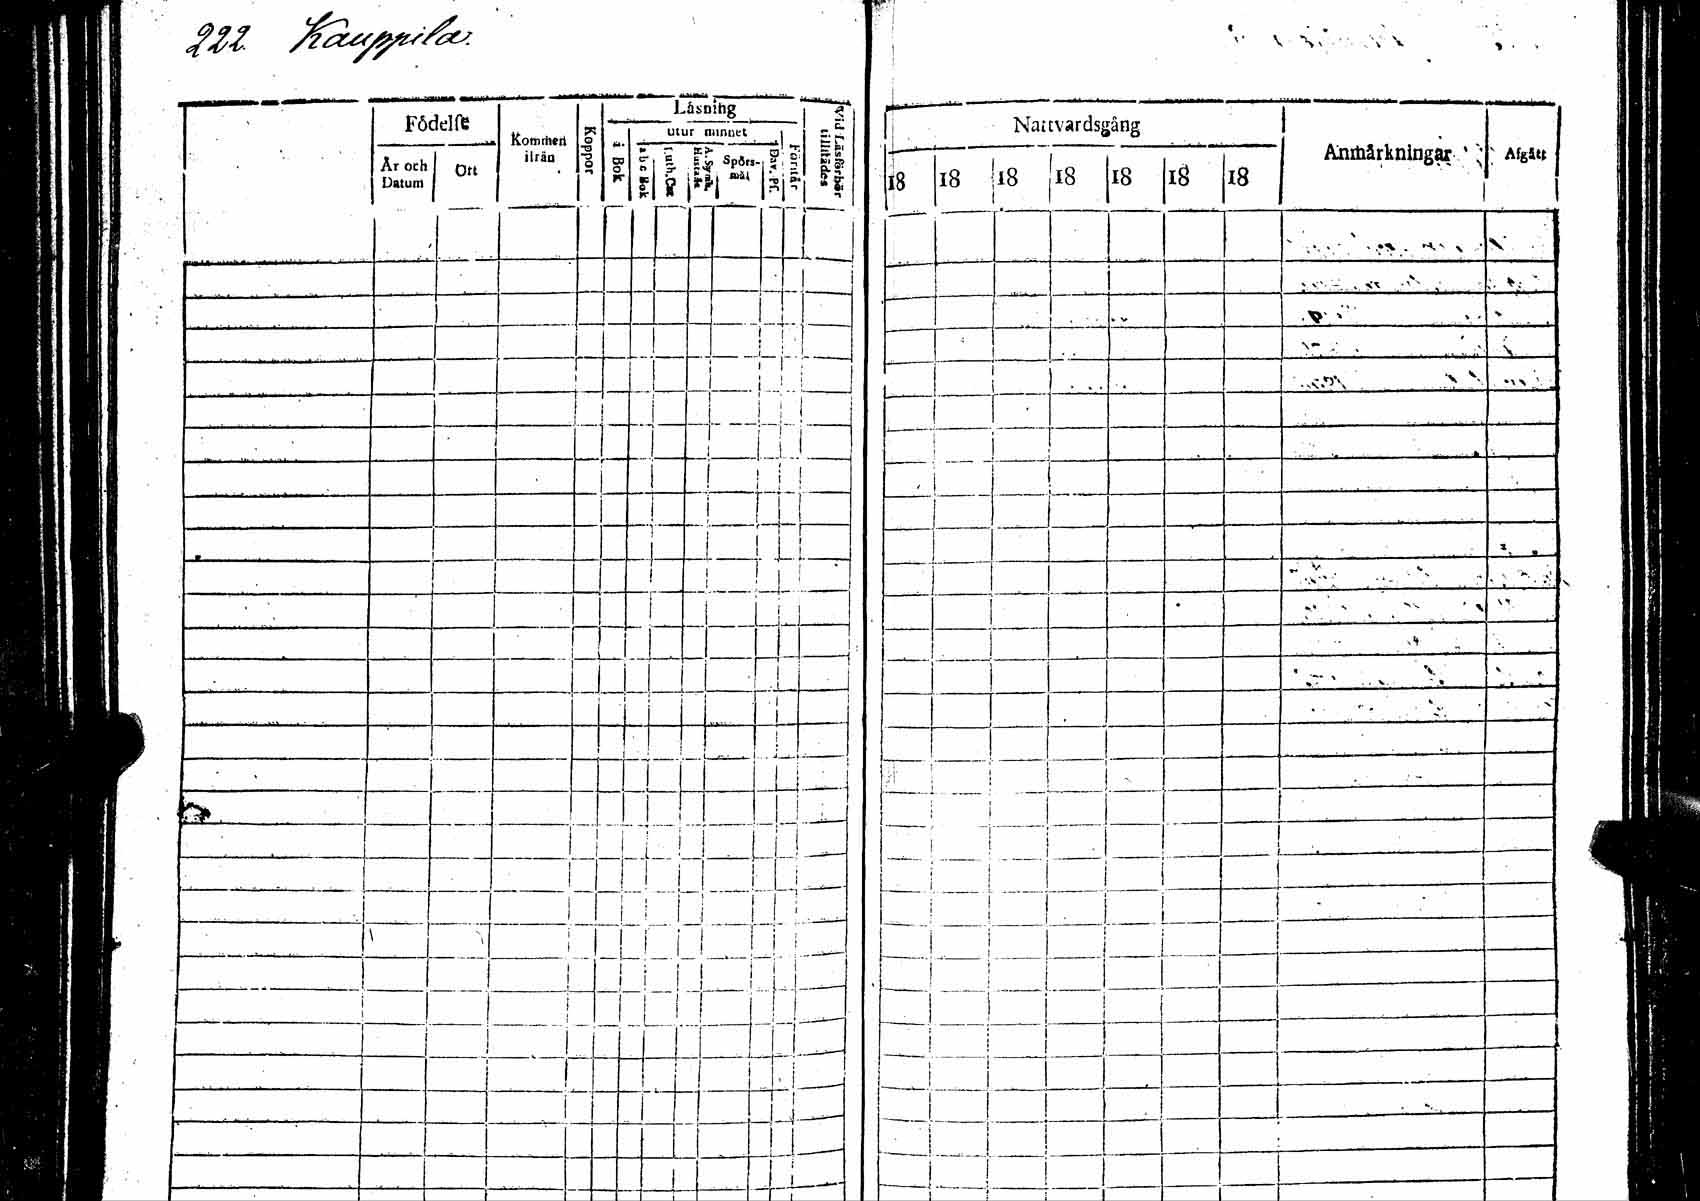 222. Kauppila.
Läsning
Födelse
Kommen
ifrån
Koppor
utur minnet
Vid Läsförhör
tillstädes
Nattvardsgång
Anmärkningar
Afgått
År och
Datum
Ort
i Bok
a b c Bok
Luth. Cat
A. Symb.
Hustafl.
Spörs-
mål
Dav. Ps.
Förstår
18 18 18 18 18 18 18